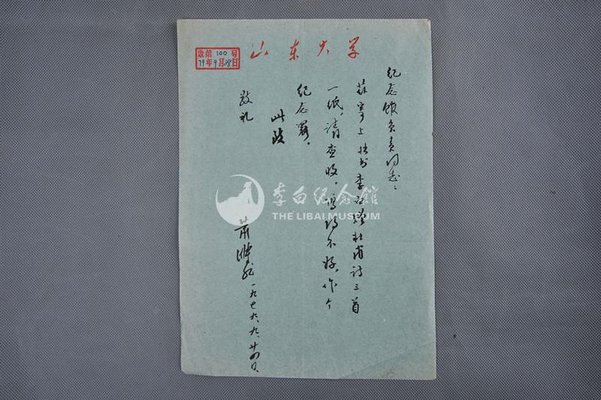 山东大学
100号
79年9月28日
纪念馆负责同志：
兹寄上拙书李白赠杜甫诗三首
一纸，请查收，写得不好，作个
纪念罢。
此致
敬礼
萧涤非 一九七九、九、廿四日
李白纪念馆
THE LIBAI MUSEUM